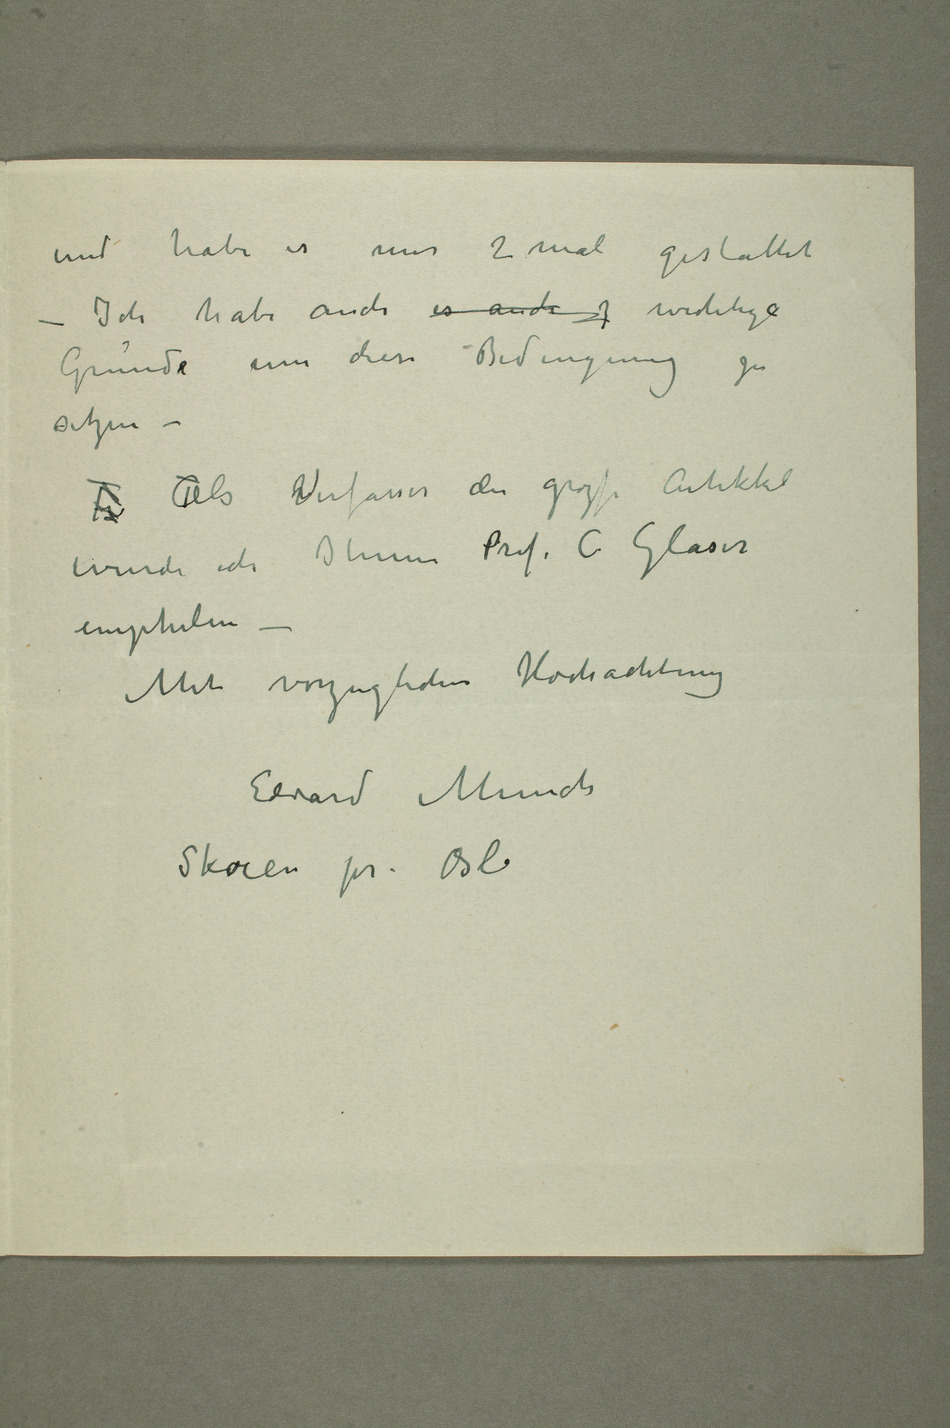 und habe es nur 2 mal gestattet
– Ich habe auch es auch wichtige
Gründe um diese Bedingung zu
setzen –
Als Verfasser der große Artikkel
wurde ich Ihnen Prof. C Glaser
emphelen –
Mit vorzuglichen Hochachtung
Edvard Munch
Skøien pr. Oslo